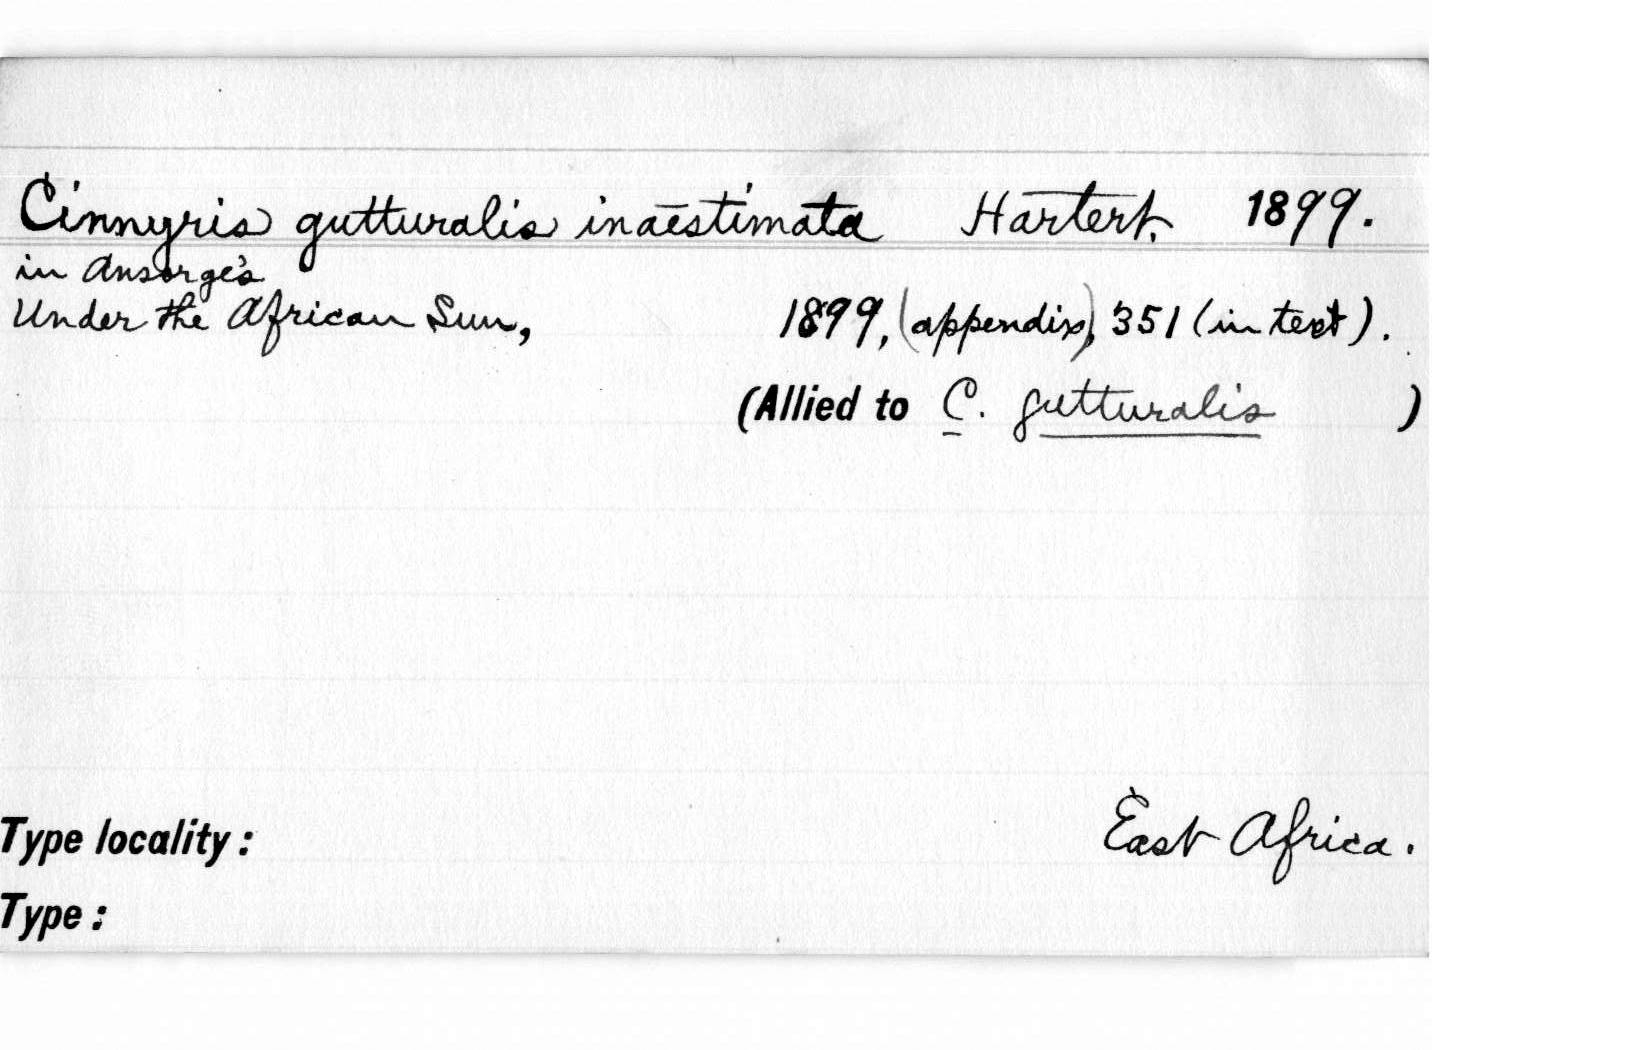 Cinnyris gutturalis inaestimata Hartert. 1899.
in Ansorge's
Under the African Sun, 1899, (appendix), 351 (in text).
(Allied to C. gutturalis )
East Africa.
Type locality:
Type: